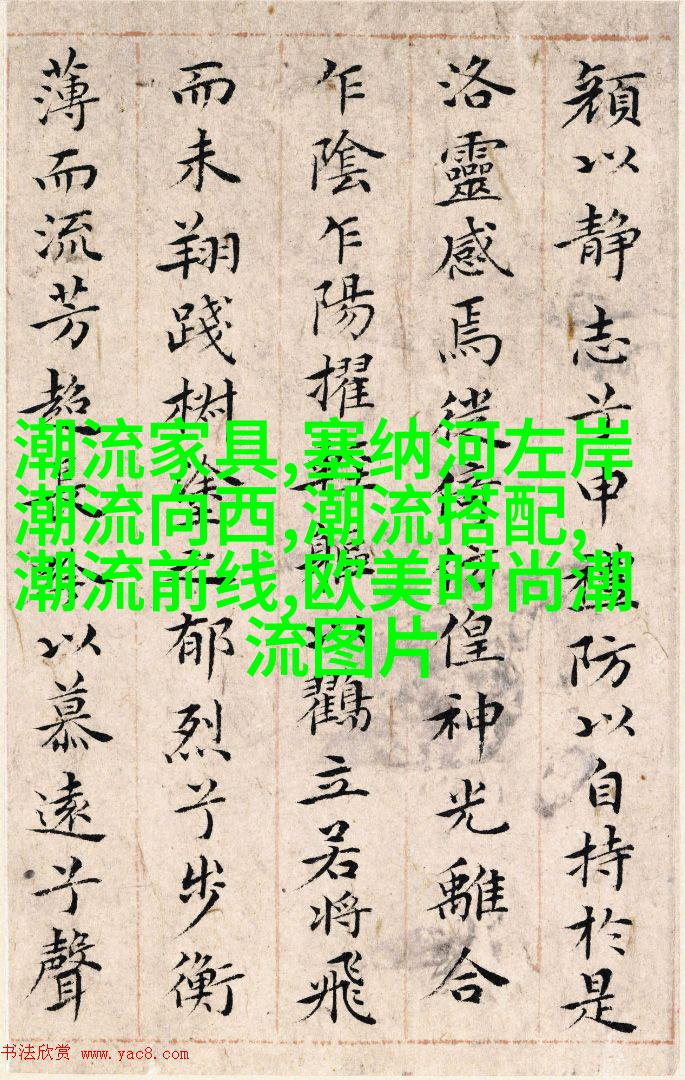 顔以靜志兮申禮防以自持於是
洛靈感焉徙倚彷偟神光離合
乍陰乍陽擢輕軀以鶴立若將飛
而未翔踐椒塗之郁烈兮步衡
薄而流芳超長吟以慕遠兮聲
潮流家具,塞纳河左岸
潮流向西,潮流搭配,
潮流前线,欧美时尚潮
流图片
书法欣赏 www.yac8.com